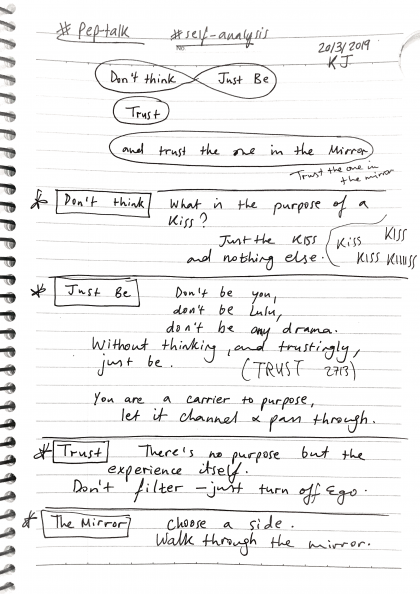 # Pep talk # self-analysis
NO
20/3/2019
KJ
Don't think Just Be
Trust
and trust the one in the Mirror
Trust the one in
the mirror
* Don't think What is the purpose of a
Kiss?
Just the KISS
and nothing else. ( Kiss KISS
KISS KIIIISS
* Just Be Don't be you,
don't be Lulu,
don't be any drama.
Without thinking, and trustingly,
just be. (TRUST 2713)
You are a carrier to purpose,
let it channel & pass through.
* Trust There's no purpose but the
experience itself.
Don't filter - just turn off Ego.
* The Mirror choose a side.
Walk through the mirror.